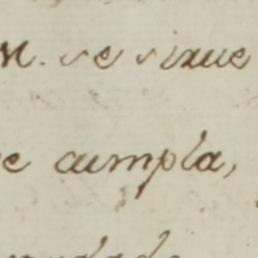 M. se sirue
e cumpla,